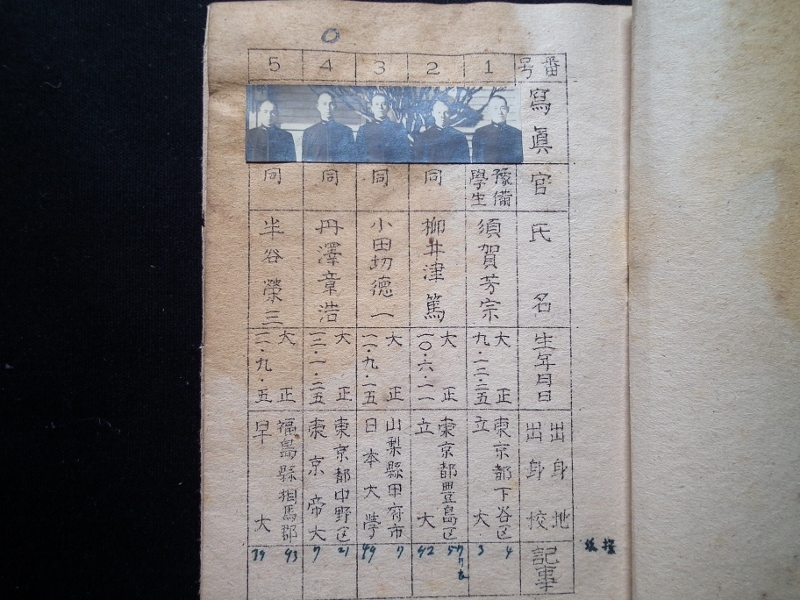 番号
寫眞
官
氏名
生年月日
出身地
出身校
記事
1
豫備
學生
須賀芳宗
大正
九・一二・二五
東京都下谷区
立大
4
3
2
同
柳井津篤
大正
一〇・六・二一
東京都豊島区
立大
57
42
3
同
小田切德一
大正
一一・九・二五
山梨縣甲府市
日本大學
7
49
4
同
丹澤章浩
大正
一二・一・二五
東京都中野区
東京帝大
21
7
5
同
半谷榮三
大正
一一・九・五
福島縣相馬郡
早大
43
39